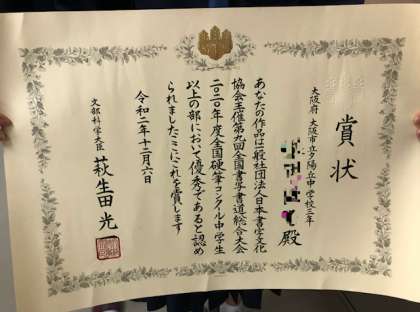 賞状
大阪府 大阪市立夕陽丘中学校三年
殿
あなたの作品は一般社団法人日本書字文化
協会主催第九回全国書写書道総合大会
二〇二〇年度全国硬筆コンクール中学生
以上の部において優秀であると認め
られましたここにこれを賞します
令和二年十二月六日
文部科学大臣 萩生田光